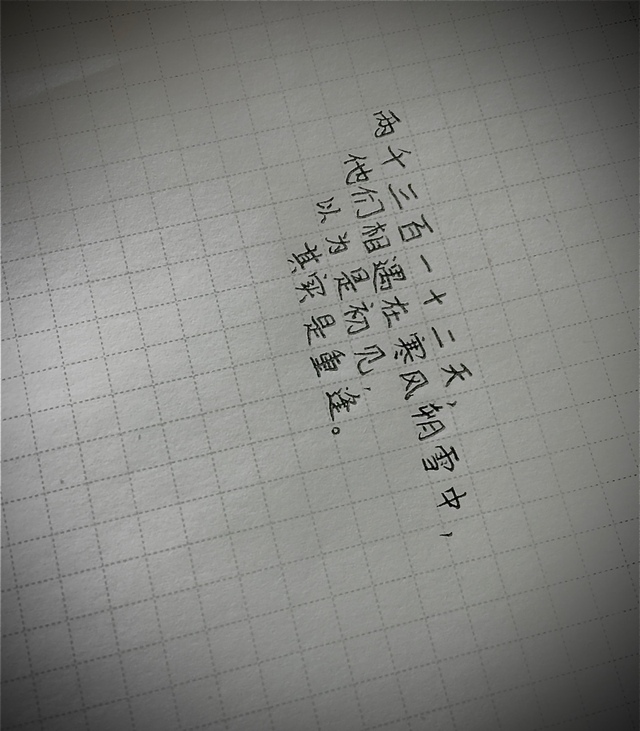 两千三百一十二天，
他们相遇在寒风朔雪中，
以为是初见，
其实是重逢。